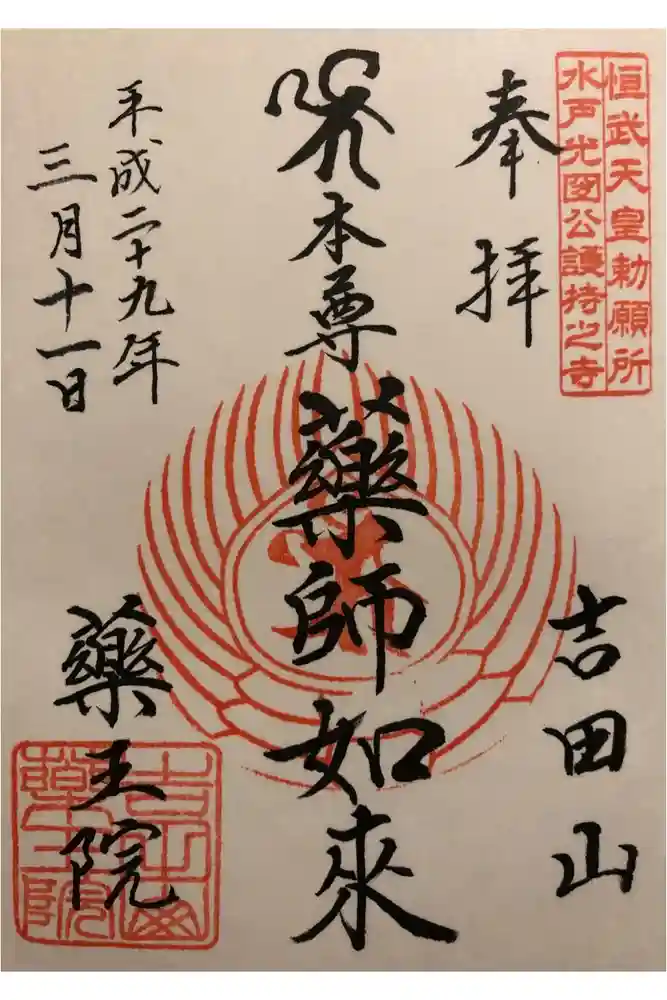 恒武天皇勅願所
水戸光圀公護持之寺
奉拝
吉田山
本尊藥師如來
平成二十九年
三月十一日
藥王院